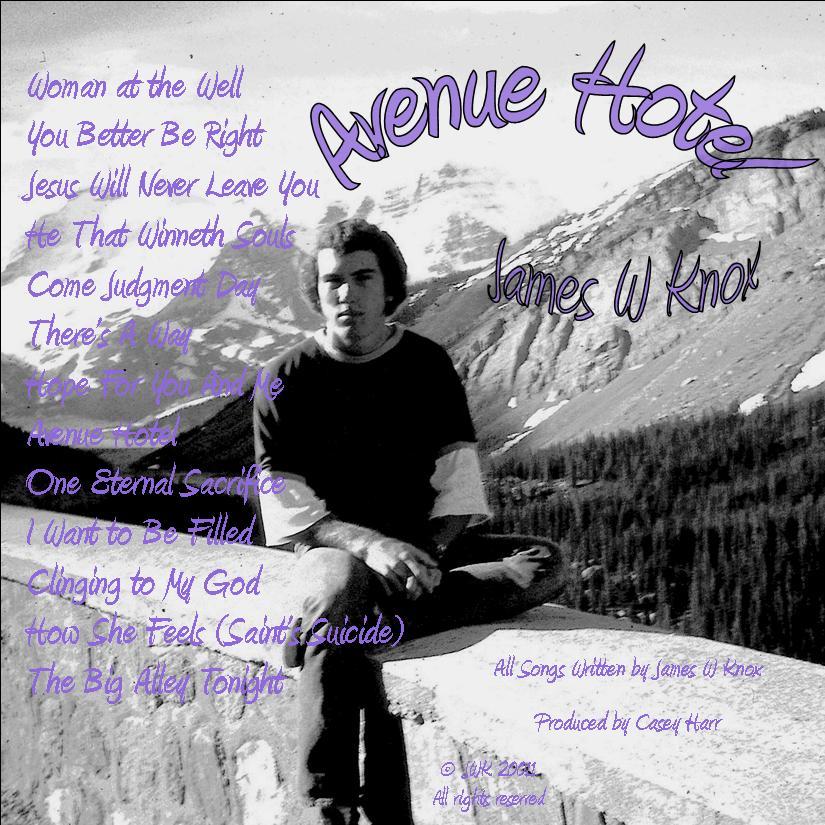 Avenue Hotel
James W Knox
Woman at the Well
You Better Be Right
Jesus Will Never Leave You
He That Winneth Souls
Come Judgment Day
There's A Way
Hope For You And Me
Avenue Hotel
One Eternal Sacrifice
I Want to Be Filled
Clinging to My God
How She Feels (Saint's Suicide)
The Big Alley Tonight
All Songs Written by James W Knox
Produced by Casey Harr
© JWK
All rights reserved